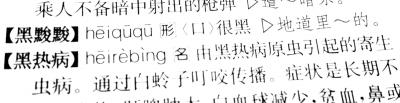 乘人不备暗中射出的枪弹▷
【黑黢黢】hēiqūqū 形〈口〉很黑▷地道里～的。
【黑热病】hēirèbìng 名 由黑热病原虫引起的寄生
虫病。通过白蛉子叮咬传播。症状是长期不
肿大,白血球减少,贫血,鼻或